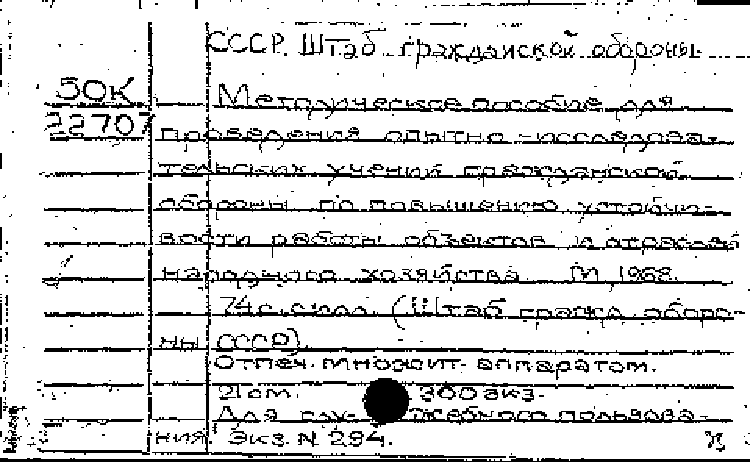 СССР. Штаб гражданской обороны
50К
22707
Методическое пособие для
проведения опытно-исследова-
тельских учений гражданской
обороны по повышению устойчи-
вости работы объектов и отраслей
народного хозяйства. М. 1968.
74с. с илл. (Штаб гражд. оборо-
ны СССР).
Отпеч. множит. аппаратом.
21см. 300 экз.
Для служебного пользова-
ния. Экз. N 294.